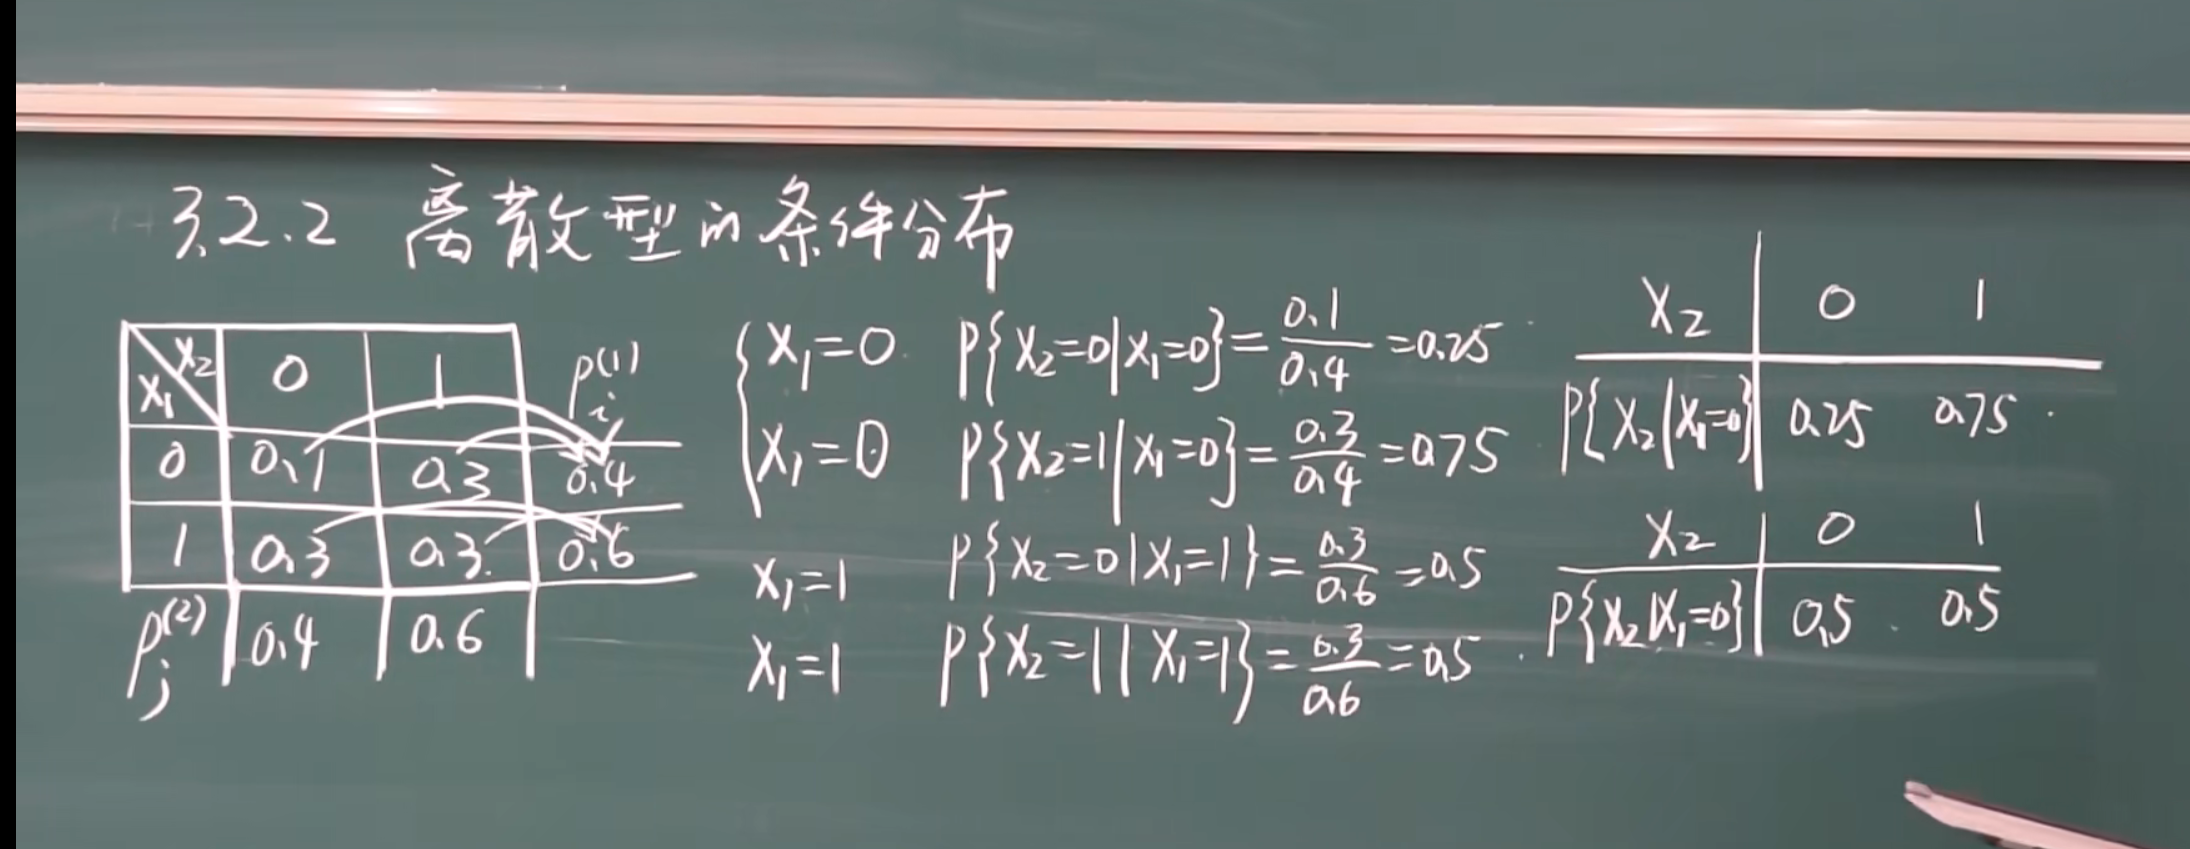 3.2.2 离散型的条件分布
X₂ 0 1 p_i^(1)
X₁
0 0.1 0.3 0.4
1 0.3 0.3 0.6
p_j^(2) 0.4 0.6
X₁=0 P{X₂=0|X₁=0}=0.1/0.4=0.25
X₁=0 P{X₂=1|X₁=0}=0.3/0.4=0.75
X₁=1 P{X₂=0|X₁=1}=0.3/0.6=0.5
X₁=1 P{X₂=1|X₁=1}=0.3/0.6=0.5
X₂ 0 1
P{X₂|X₁=0} 0.25 0.75
X₂ 0 1
P{X₂|X₁=0} 0.5 0.5